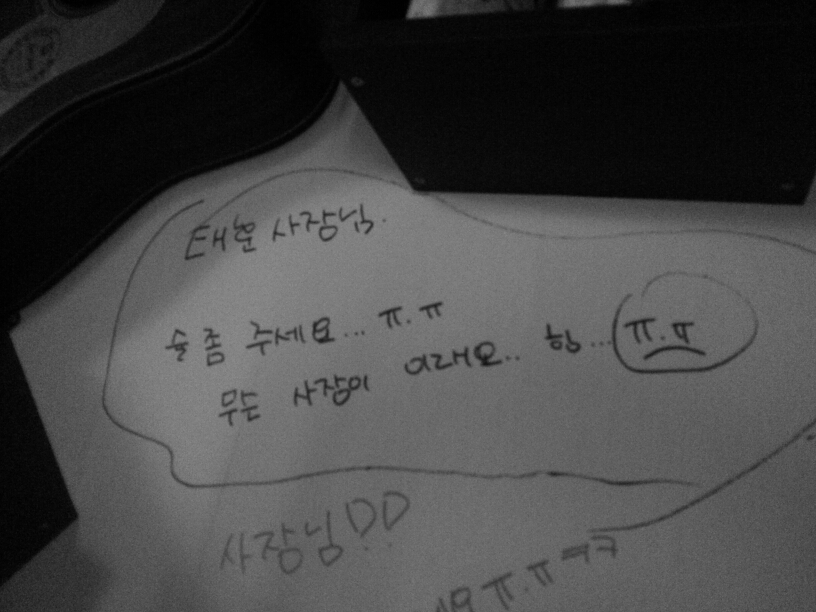 태훈 사장님.
술 좀 주세요... ㅠ.ㅠ
무슨 사장이 이래요.. 힝... ㅠ.ㅠ
사장님!!
ㅠ.ㅠ